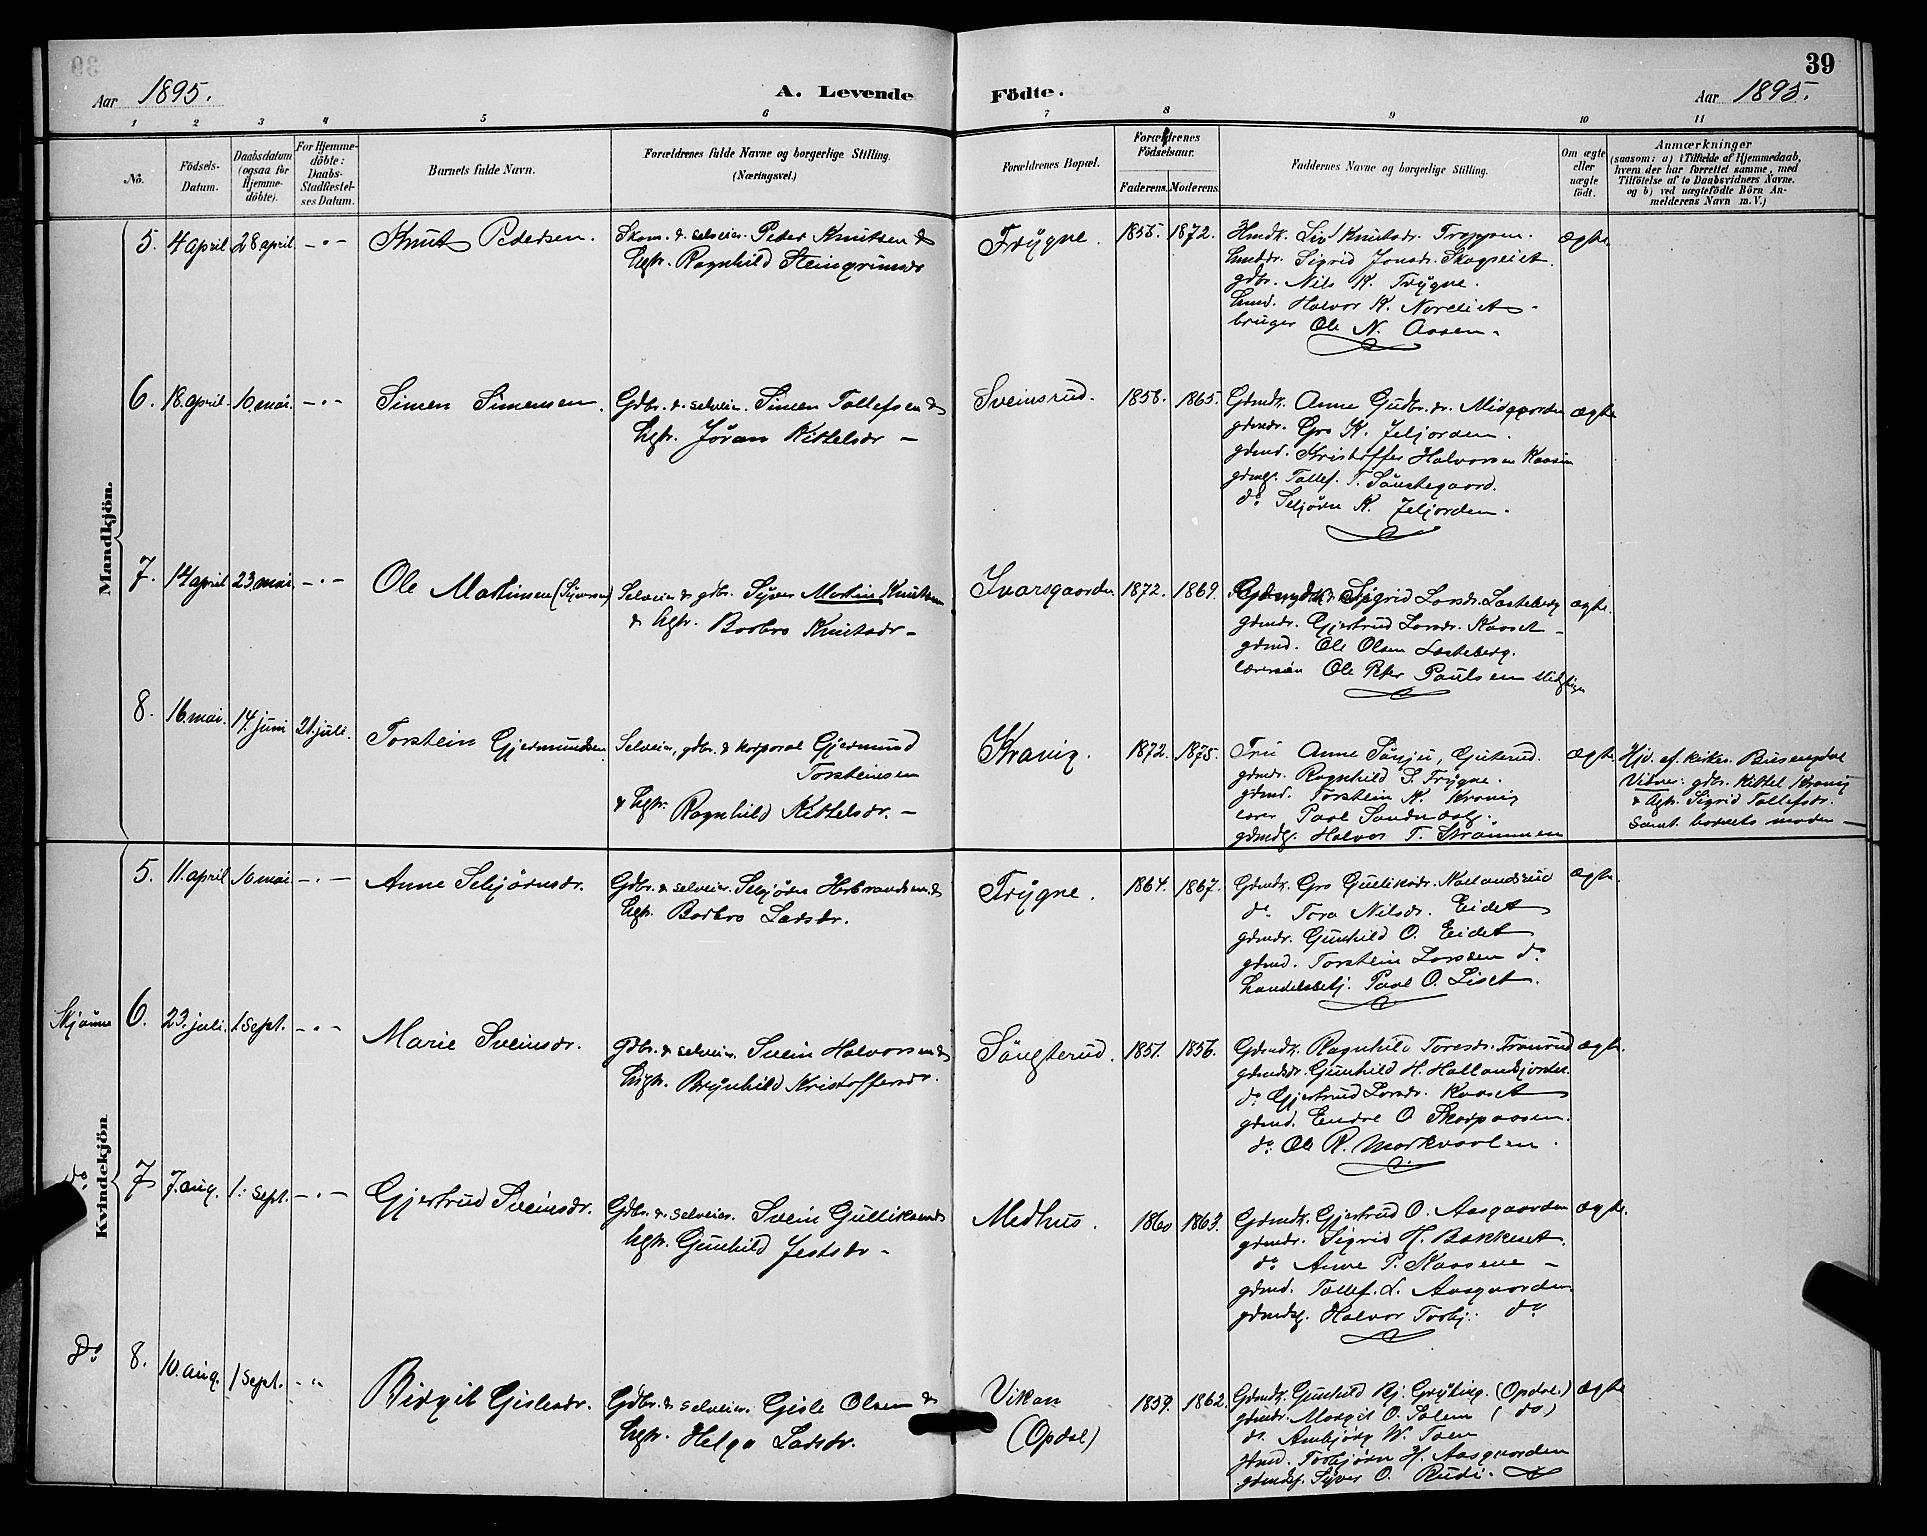 39
Aar 1895.
A. Levende Födte.
Aar 1895.
1 2 3 4 5 6 7 8 9 10 11
No.
Födsels-Datum.
Daabsdatum (ogsaa for Hjemme-döbte).
For Hjemme-döbte: Daabs-Stadfæstel-ses Datum.
Barnets fulde Navn.
Forældrenes fulde Navne og borgerlige Stilling.
(Næringsvei.)
Forældrenes Bopæl.
Forældrenes Födselsaar.
Faderens. Moderens.
Faddernes Navne og borgerlige Stilling.
Om ægte eller uægte födt.
Anmærkninger
(saasom: a) i Tilfælde af Hjemmedaab,
hvem der har forrettet samme, med
Tilföielse af to Daabsvidners Navne.
og b) ved uægtefödte Börn An-
melderens Navn m. V.)
Mandkjön.
5. 4 april 28 april -"- Knut Pedersen. Skom. & selveier. Peder Knutsen &
hgtr. Ragnhild Steingrimsdr
Frygne. 1855. 1872. Hmdk. Liv Knutsdr. Froggen. ægte
hmddr. Sigrid Jonsdr. Skogseiet.
gdbr. Nils K. Frygne.
hmd. Halvor K. Nordeiet
bruger Ole N. Aasen.
6. 18. april. 10. mai. -"- Simen Simensen. Gdbr. & selveier. Simen Tollefsen &
hgtr. Jøran Kittelsdr -
Sveinsrud. 1858. 1865. Gdmdk. Anne Gudbr.dr. Midgaarden ægte
gdmdr. Gro K. Jeljorden.
gdmd. Kristoffer Halvorsen Kaasin
gdmds. Tollef. T. Sönstegaard.
do Seljørn K. Jeljorden.
7. 14 april 23. mai -"- Ole Martinsen (Syversen) Selveier & gdbr. Syver Martin Knutsen
& hgtr. Barbro Knutsdr -
Ivarsgaarden 1872. 1869. Sigrid Larsdr. Lasteberg ægte.
gdmdr. Gjertrud Larsdr. Kaaset -
gdmd. Ole Olsen Lasteberg.
lærersön Ole Peter Paulsen
8. 16. mai. 14. juni 21. juli. Torstein Gjermundsen Selveier, gdbr. & korporal Gjermund
Torsteinsen
& hgtr. Ragnhild Kittelsdr. -
Kravig. 1872. 1875. Fru Anne Sönju, Gjuterud. ægte.
gdmdr. Ragnhild S. Frygne.
gdmd. Torstein K. Kravig
lærer Paul Sandvaag.
gdmds. Halvor T. Strømmen
Hjd. af kirkes. Busengdal
Vidner: gdbr. Kittel Kravig
& hgtr. Sigrid Tollefsdr.
samt. barnets moder -
Kvindekjön
5. 11. april 10. mai -"- Anne Seljørnsdr. Gdbr. & selveier. Seljørn Herbrandsen. &
hgtr. Barbro Larsdr.
Frygne. 1864. 1867. Gdmdk. Gro Gulliksdr. Narlandsrud ægte.
do. Tora Nilsdr. Eidet
gdmdr. Gunhild O. Eidet
gdmd. Torstein Larsen do
handelsbetj. Paul O. Liset.
Skjönne 6. 23. juli. 1 sept. -"- Marie Sveinsdr. Gdbr. & selveier. Svein Halvorsen &
hgtr. Brynhild Kristoffersdr.
Söngterud. 1851. 1856. Gdmdk. Ragnhild Toresdr. Fronrud ægte.
gdmdr. Gunhild H. Hallandsjordet.
do Gjertrud Larsdr. Kaaset
gdmd. Endre O Skarpaasen.
do. Ole R. Markvarlen.
do. 7 7. aug. 1. sept. -"- Gjertrud Sveinsdr. Gdbr. & selveier. Svein Gulliksen &
hgtr. Gunhild Jestsdr -
Medhus. 1860 1863. Gdmdk. Gjertrud O. Aasgaarden ægte.
gdmdr. Sigrid H. Bakkeset.
do Anne P. Kaasene -
gdmd. Tollef. L. Aasgaarden
gdmds. Halvor Torbj. do
do 8. 10. aug. 1 sept. -"- Birgit Gislesdr. Gdbr. & selveier. Gisle Olsen &
hgtr. Helga Larsdr.
Vikan
(Opdal) 1859. 1862. Gdmdk. Gunhild Kj. Gryting. (Opdal.) ægte
gdmdr. Margit O. Solem (do)
do. Ambjörg W. Toen
gdmd. Torbjørn H. Aasgaarden
gdmds. Syver O. Rudi.